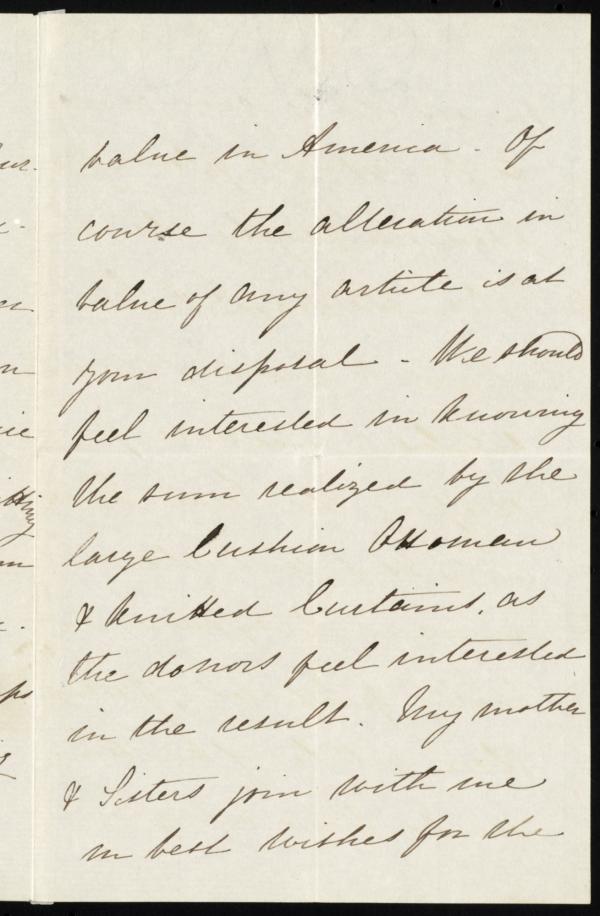 value in America. Of
course the alteration in
value of any article is at
your disposal - We should
feel interested in knowing
the sum realized by the
large Cushion Ottoman
& knitted Curtains, as
the donors feel interested
in the result. My mother
& Sisters join with me
in best wishes for the